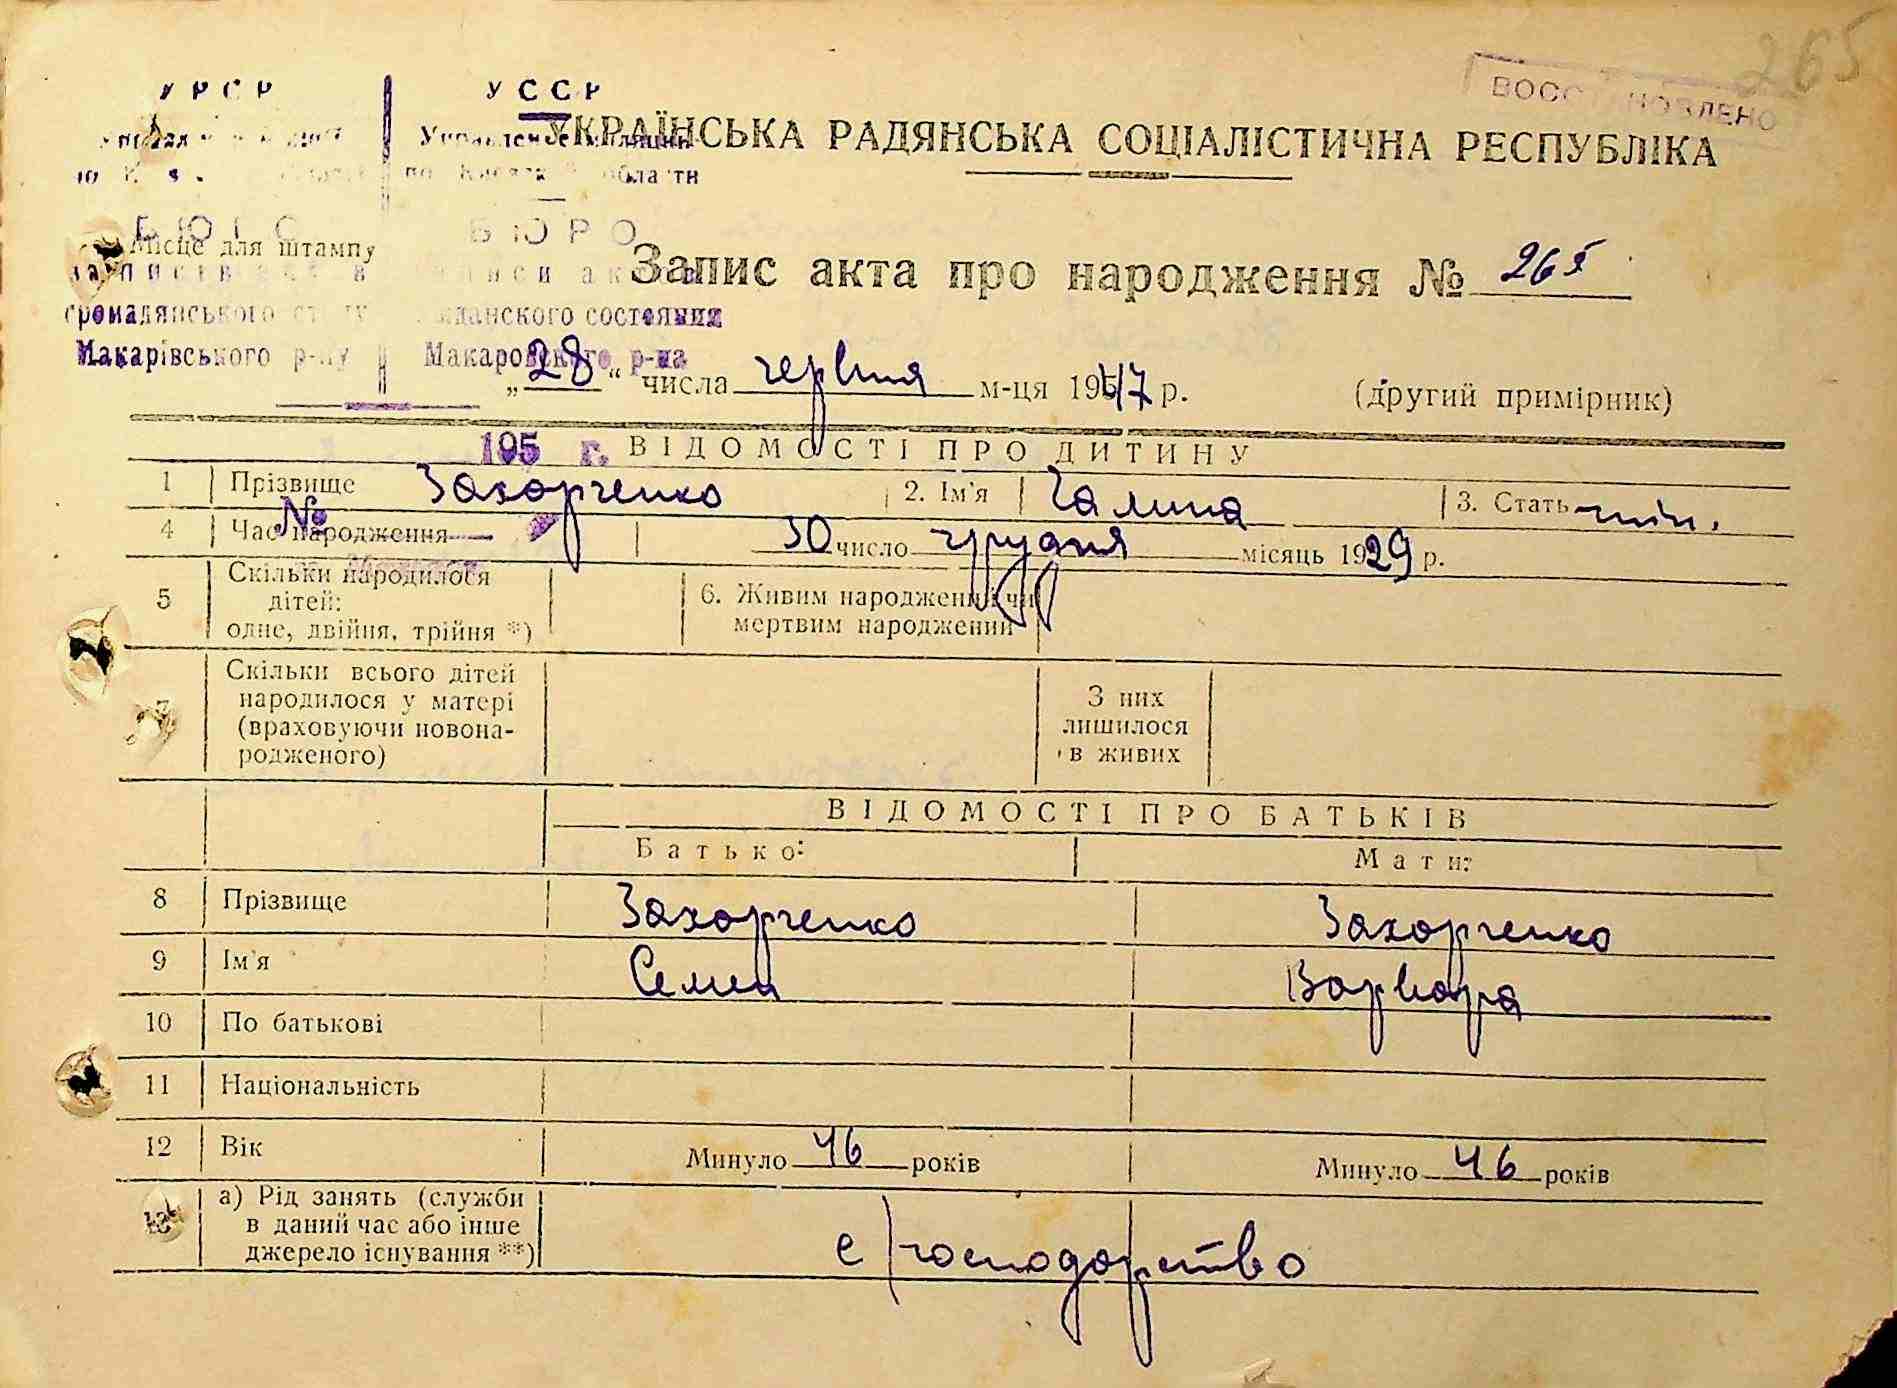 265
ВОССТАНОВЛЕНО
УРСР УССР
Управление милиции
по Киевской области
БЮРО БЮРО
УКРАЇНСЬКА РАДЯНСЬКА СОЦІАЛІСТИЧНА РЕСПУБЛІКА
Місце для штампу
Запис акта про народження № 265
громадянського стану
состояния
Макарівського р-ну Макаровского р-на
„28“ числа червня м-ця 1947 р. (другий примірник)
195 г.
ВІДОМОСТІ ПРО ДИТИНУ
1 Прізвище Захарченко 2. Ім'я Галина 3. Стать жін.
№
4 Час народження 30 число грудня місяць 1929 р.
5 Скільки народилося
дітей:
одне, двійня, трійня *)
6. Живим народжений чи
мертвим народжений
7 Скільки всього дітей
народилося у матері
(враховуючи новона-
родженого)
З них
лишилося
в живих
ВІДОМОСТІ ПРО БАТЬКІВ
Батько: Мати:
8 Прізвище Захарченко Захарченко
9 Ім'я Семен Варвара
10 По батькові
11 Національність
12 Вік Минуло 46 років Минуло 46 років
13 а) Рід занять (служби
в даний час або інше
джерело існування **)
с/господарство